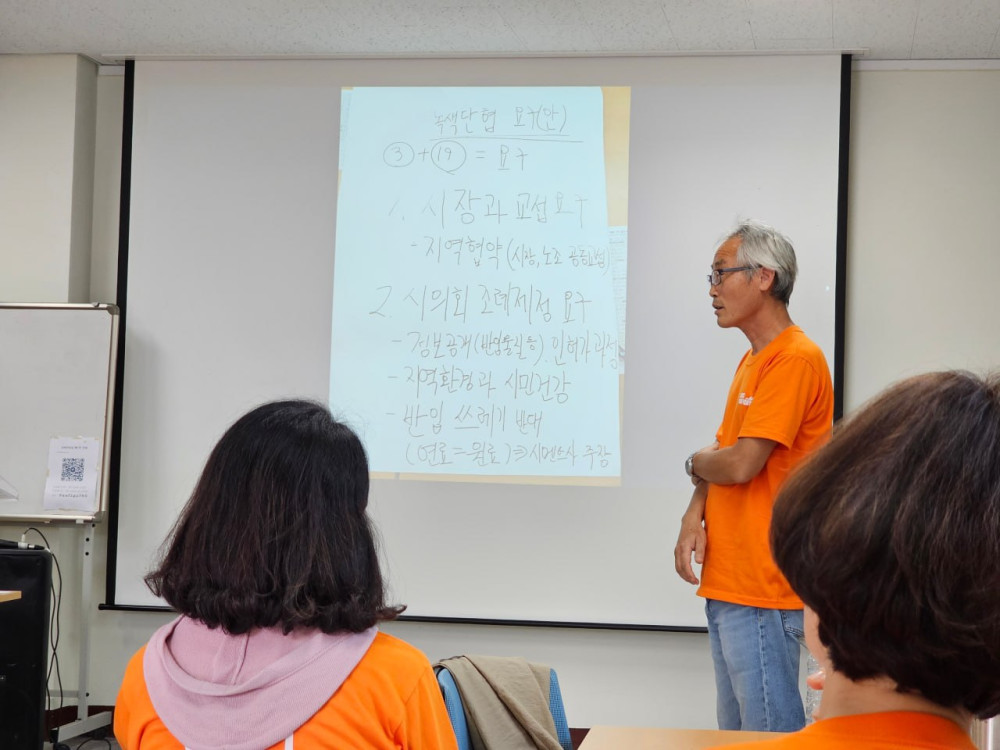 녹색단협 요구(안)
③ + ⑲ = 요구
1. 시장과 교섭 요구
- 지역협약 (시장, 노조 공동교섭)
2. 시의회 조례제정 요구
- 정보공개 (반입물질 등), 인허가 과정
- 지역환경과 시민건강
- 반입 쓰레기 반대
(연료=원료) ⇒ 시멘트사 주장